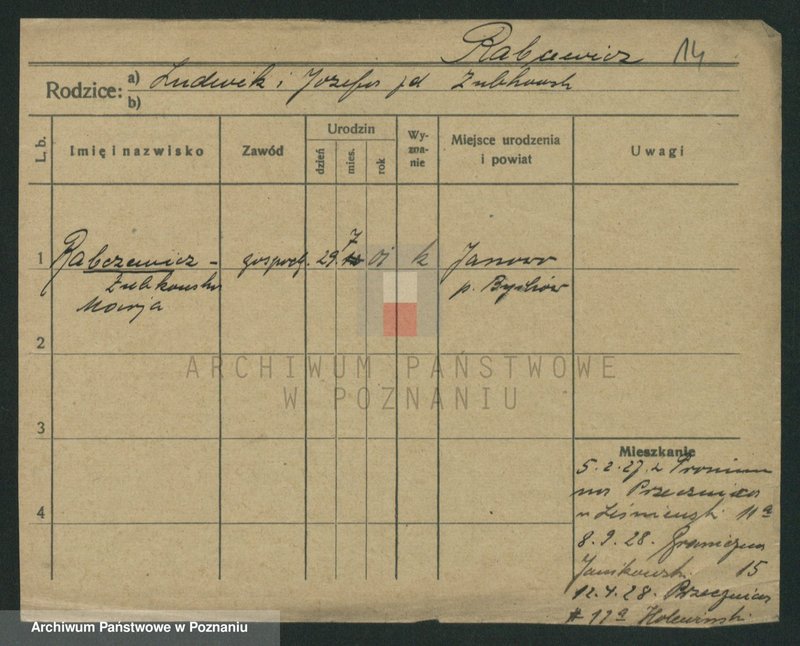 Rabcewicz 14
Rodzice: a) Ludwik i Józefa jd Zubkowsk
b)
L. b. Imię i nazwisko Zawód Urodzin dzień mies. rok Wyznanie Miejsce urodzenia i powiat Uwagi
1 Rabczewicz - gospod. 29. 7 01 k Janowo
Zubkowska p. Bychów
Marja
2
ARCHIWUM PAŃSTWOWE
W POZNANIU
3
4
Mieszkanie
5.2.27. z
na Przecznica
u 11a
8.9.28. Graniczna
Janikowski 15
12.4.28. Przecznica
# 11a
Archiwum Państwowe w Poznaniu